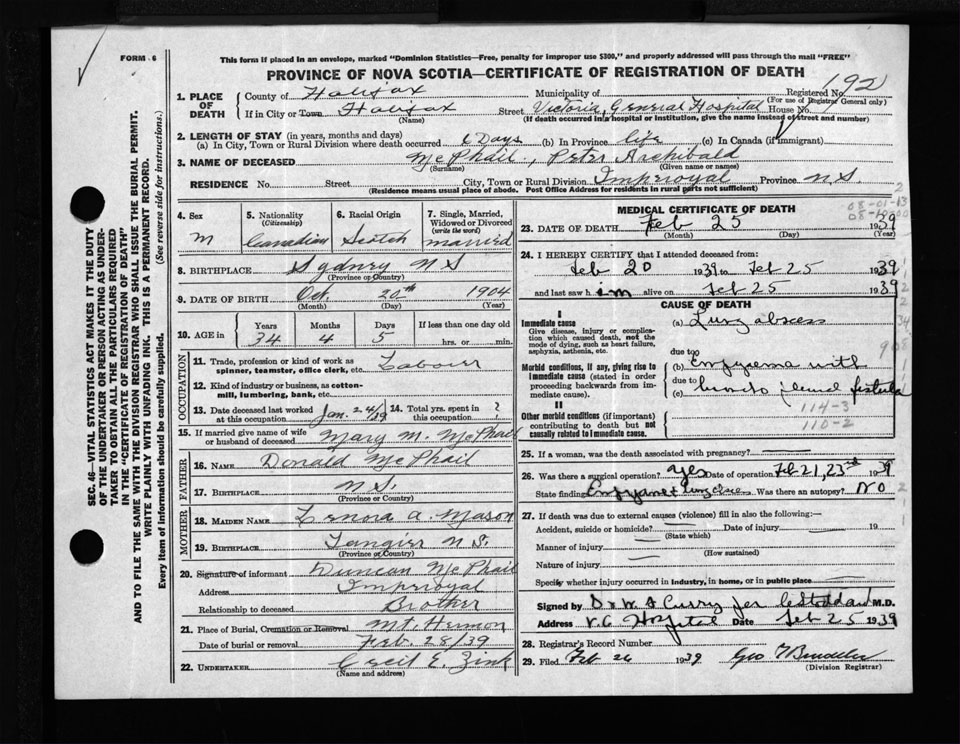 FORM 6
This form if placed in an envelope, marked "Dominion Statistics—Free, penalty for improper use $300," and properly addressed will pass through the mail "FREE"
PROVINCE OF NOVA SCOTIA—CERTIFICATE OF REGISTRATION OF DEATH
192
1. PLACE OF DEATH
County of Halifax Municipality of Registered No. (For use of Registrar General only)
If in City or Town Halifax (Name) Street Victoria General Hospital House No.
(If death occurred in a hospital or institution, give the name instead of street and number)
2. LENGTH OF STAY (in years, months and days)
(a) In City, Town or Rural Division where death occurred 6 Days (b) In Province life (c) In Canada (if immigrant)
3. NAME OF DECEASED McPhail, Peter Archibald
(Surname) (Given name or names)
RESIDENCE No. Street City, Town or Rural Division Imperoyal Province N S
(Residence means usual place of abode. Post Office Address for residents in rural parts not sufficient)
4. Sex M
5. Nationality (Citizenship) Canadian
6. Racial Origin Scotch
7. Single, Married, Widowed or Divorced (write the word) married
8. BIRTHPLACE Sydney N S
(Province or Country)
9. DATE OF BIRTH Oct. 20th 1904
(Month) (Day) (Year)
10. AGE in Years 34 Months 4 Days 5 If less than one day old hrs. or min.
OCCUPATION
11. Trade, profession or kind of work as spinner, teamster, office clerk, etc. Labour
12. Kind of industry or business, as cotton-mill, lumbering, bank, etc.
13. Date deceased last worked at this occupation Jan. 24/39 14. Total yrs. spent in this occupation ?
15. If married give name of wife or husband of deceased Mary M. McPhail
FATHER
16. NAME Donald McPhail
17. BIRTHPLACE N.S.
(Province or Country)
MOTHER
18. MAIDEN NAME Lenora A. Mason
19. BIRTHPLACE Tangier N S.
(Province or Country)
20. Signature of informant Duncan McPhail
Address Imperoyal
Relationship to deceased Brother
21. Place of Burial, Cremation or Removal Mt. Hermon
Date of burial or removal Feb. 28/39
22. UNDERTAKER Cecil E. Zink
(Name and address)
MEDICAL CERTIFICATE OF DEATH
23. DATE OF DEATH Feb 25 1939
(Month) (Day) (Year)
24. I HEREBY CERTIFY that I attended deceased from:
Feb 20 1939 to Feb 25 1939
and last saw him alive on Feb 25 1939
CAUSE OF DEATH
I
Immediate cause (a) Lung abscess
Give disease, injury or complication which caused death, not the mode of dying, such as heart failure, asphyxia, asthenia, etc.
due to
Morbid conditions, if any, giving rise to immediate cause (stated in order proceeding backwards from immediate cause). (b) Empyema with
due to
(c) pleural fistula
II
Other morbid conditions (if important) contributing to death but not causally related to immediate cause.
114-3
110-2
25. If a woman, was the death associated with pregnancy?
26. Was there a surgical operation? yes Date of operation Feb 21, 23rd 1939
State finding Was there an autopsy? No
27. If death was due to external causes (violence) fill in also the following:—
Accident, suicide or homicide? Date of injury 19
(State which)
Manner of injury
(How sustained)
Nature of injury
Specify whether injury occurred in industry, in home, or in public place
Signed by Dr W A Curry per M.D.
Address V. G. Hospital Date Feb 25 1939
28. Registrar's Record Number
29. Filed Feb 26 1939 Geo
(Division Registrar)
SEC. 46—VITAL STATISTICS ACT MAKES IT THE DUTY
OF THE UNDERTAKER OR PERSON ACTING AS UNDER-
TAKER TO OBTAIN ALL THE PARTICULARS REQUIRED
IN THE "CERTIFICATE OF REGISTRATION OF DEATH"
AND TO FILE THE SAME WITH THE DIVISION REGISTRAR WHO SHALL ISSUE THE BURIAL PERMIT.
WRITE PLAINLY WITH UNFADING INK. THIS IS A PERMANENT RECORD.
Every item of information should be carefully supplied. (See reverse side for instructions.)